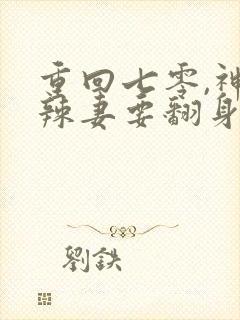 重回七零,神
辣妻要翻身
劉鉄